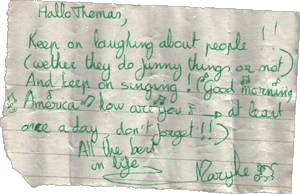 Hallo Thomas,
Keep on laughing about people !!
(wether they do funny things or not)
And keep on singing! (good morning
America how are you → at least
once a day, don't forget!!)
All the best
in life